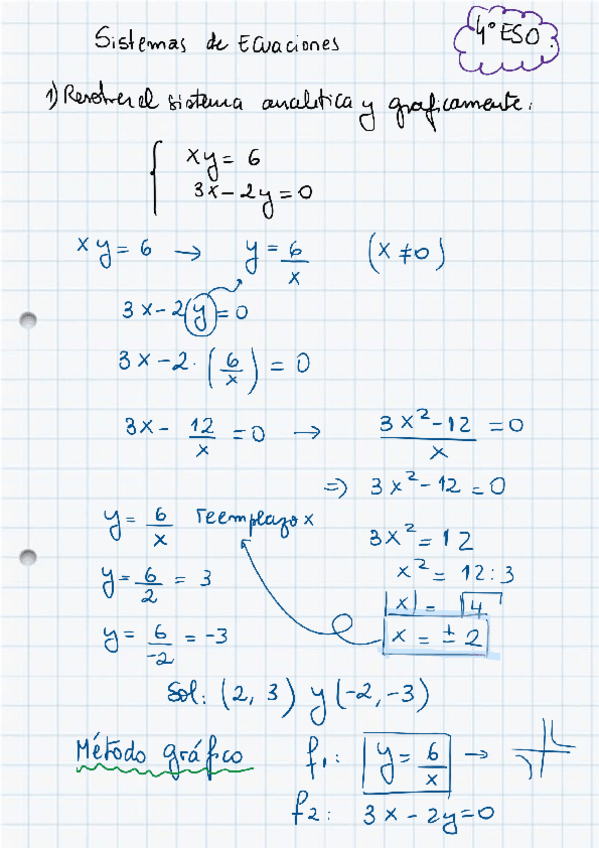 Sistemas de Ecuaciones
4º ESO.
1) Resolver el sistema analitica y graficamente:
xy = 6
3x - 2y = 0
xy = 6 → y = 6/x (x ≠ 0)
3x - 2y = 0
3x - 2 · (6/x) = 0
3x - 12/x = 0 → (3x² - 12)/x = 0
⇒ 3x² - 12 = 0
y = 6/x reemplazo x
3x² = 12
y = 6/2 = 3
x² = 12 : 3
|x| = √4
y = 6/-2 = -3
x = ± 2
Sol: (2, 3) y (-2, -3)
Método gráfico f₁: y = 6/x →
f₂: 3x - 2y = 0